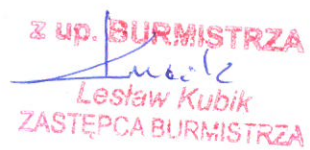 z up. BURMISTRZA
Kubik
Lesław Kubik
ZASTĘPCA BURMISTRZA